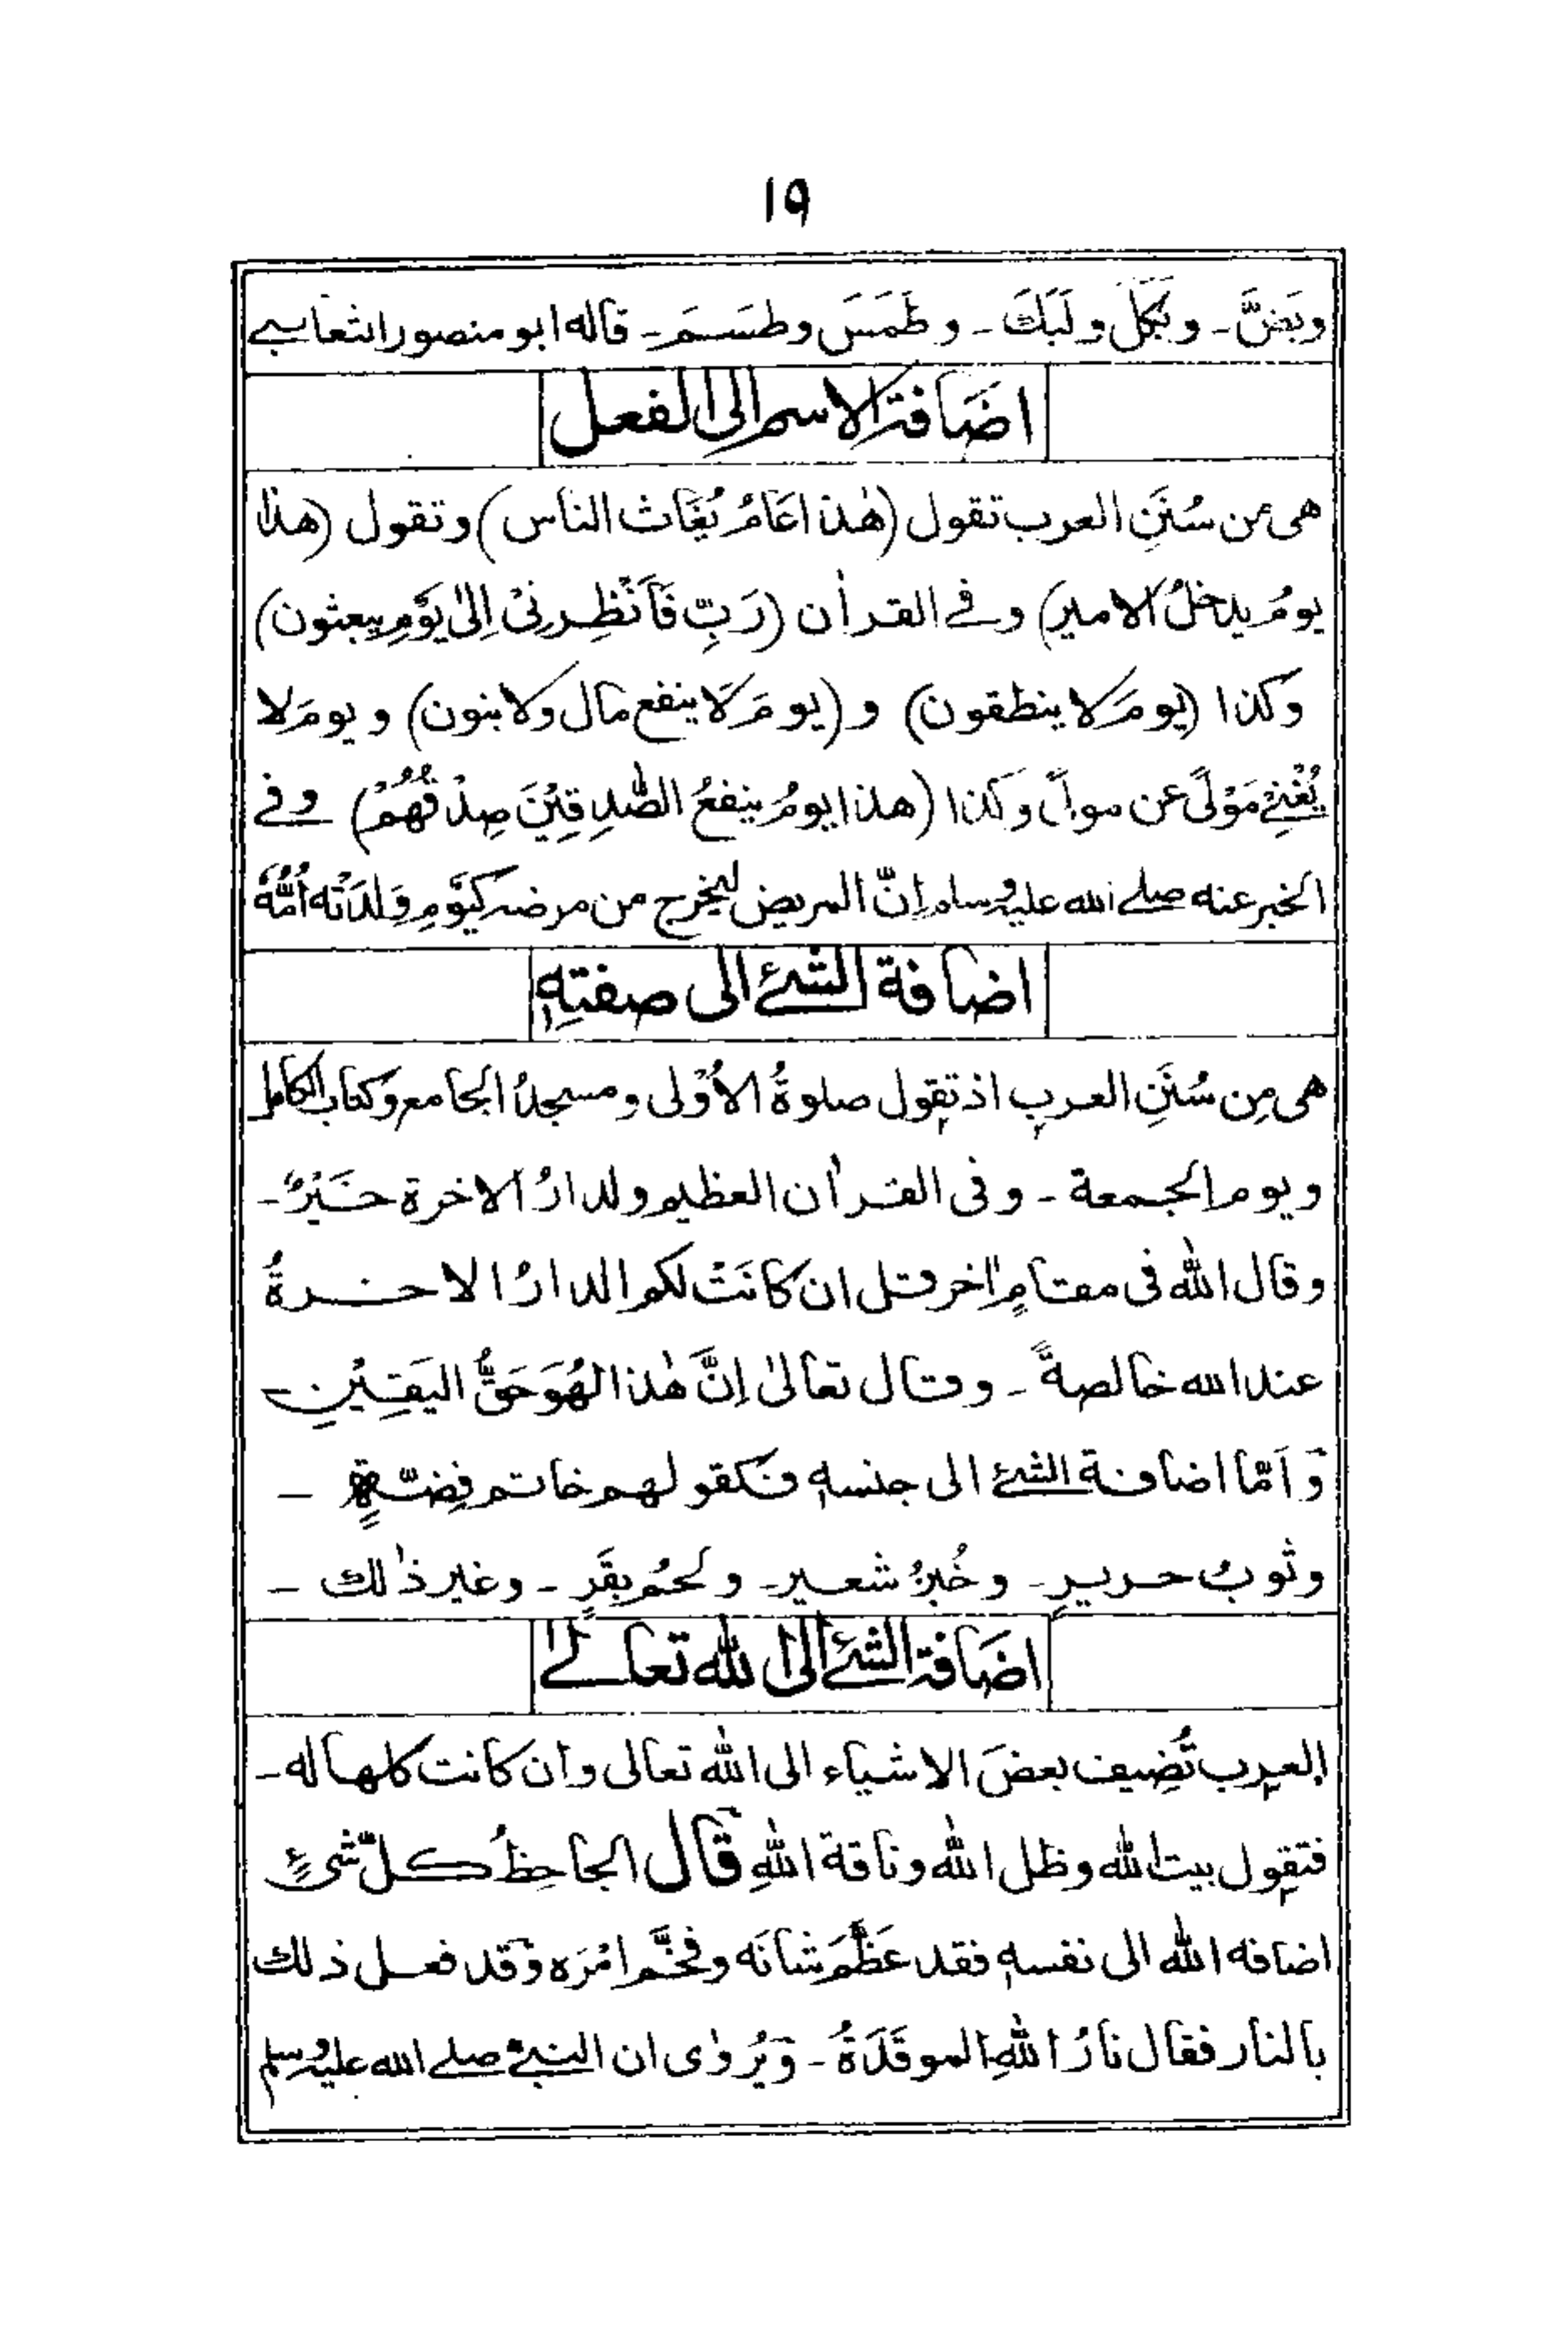 ١٩
وبَضَّ ـ وبَكَلَ ولَبَكَ ـ وطَمَسَ وطسَمَ ـ قاله ابو منصور الثعالبى
اضَافة الاسم الى الفعل
هى من سُنَنِ العرب تقول (هٰذا عَامُ يُغَاث الناس) وتقول (هذا
يومُ يدخلُ الامير) وفى القراٰن (رَبِّ فَاَنْظِرنِىْ اِلىٰ يَوْمِ يبعثون)
وكذا (يومَ لا ينطقون) و (يومَ لَا ينفع مال ولا بنون) و يومَ لا
يُغْنِىْ مَوْلًى عن مولًى وكذا (هذا يومُ ينفعُ الصّٰدِقِيْنَ صِدْقُهُمْ) وفى
الخبر عنه صلى الله عليه وسلم اِنَّ المريض ليخرج من مرضه كَيَوْمِ وَلَدَتْه اُمُّهُ
اضافة الشئ الى صفتهٖ
هى مِن سُنَنِ العرب اذ تقول صلوةُ الاُوْلى ومسجدُ الجامع وكتاب الكامل
ويوم الجمعة ـ وفى القراٰن العظيم ولدارُ الاخرة خَيْرٌ ـ
وقال الله فى مقامٍ اٰخر قل ان كانَتْ لكم الدارُ الاخرةُ
عند الله خالصةً ـ وقال تعالىٰ اِنَّ هٰذا لهُوَ حَقُّ اليَقِيْنِ ـ
وَاَمّا اضافة الشئ الى جنسهٖ فكقولهم خاتم فِضّةٍ ـ
وثوبُ حريرٍ ـ وخُبزُ شعير ـ ولحمُ بقَرٍ ـ وغير ذٰلك ـ
اضَافة الشئ الى الله تعالىٰ
العرب تُضِيف بعضَ الاشياء الى الله تعالى وان كانت كلها له ـ
فتقول بيت الله وظل الله وناقة اللهِ قَال الجاحِظُ كلّ شىءٍ
اضافه الله الى نفسهٖ فقد عَظَّمَ شانَه وفخَّم امْرَه وَقد فعل ذلك
بالنار فقال نارُ اللهِ الموقَدَةُ ـ وَيُرْوٰى ان النبىَّ صلى الله عليه وسلم